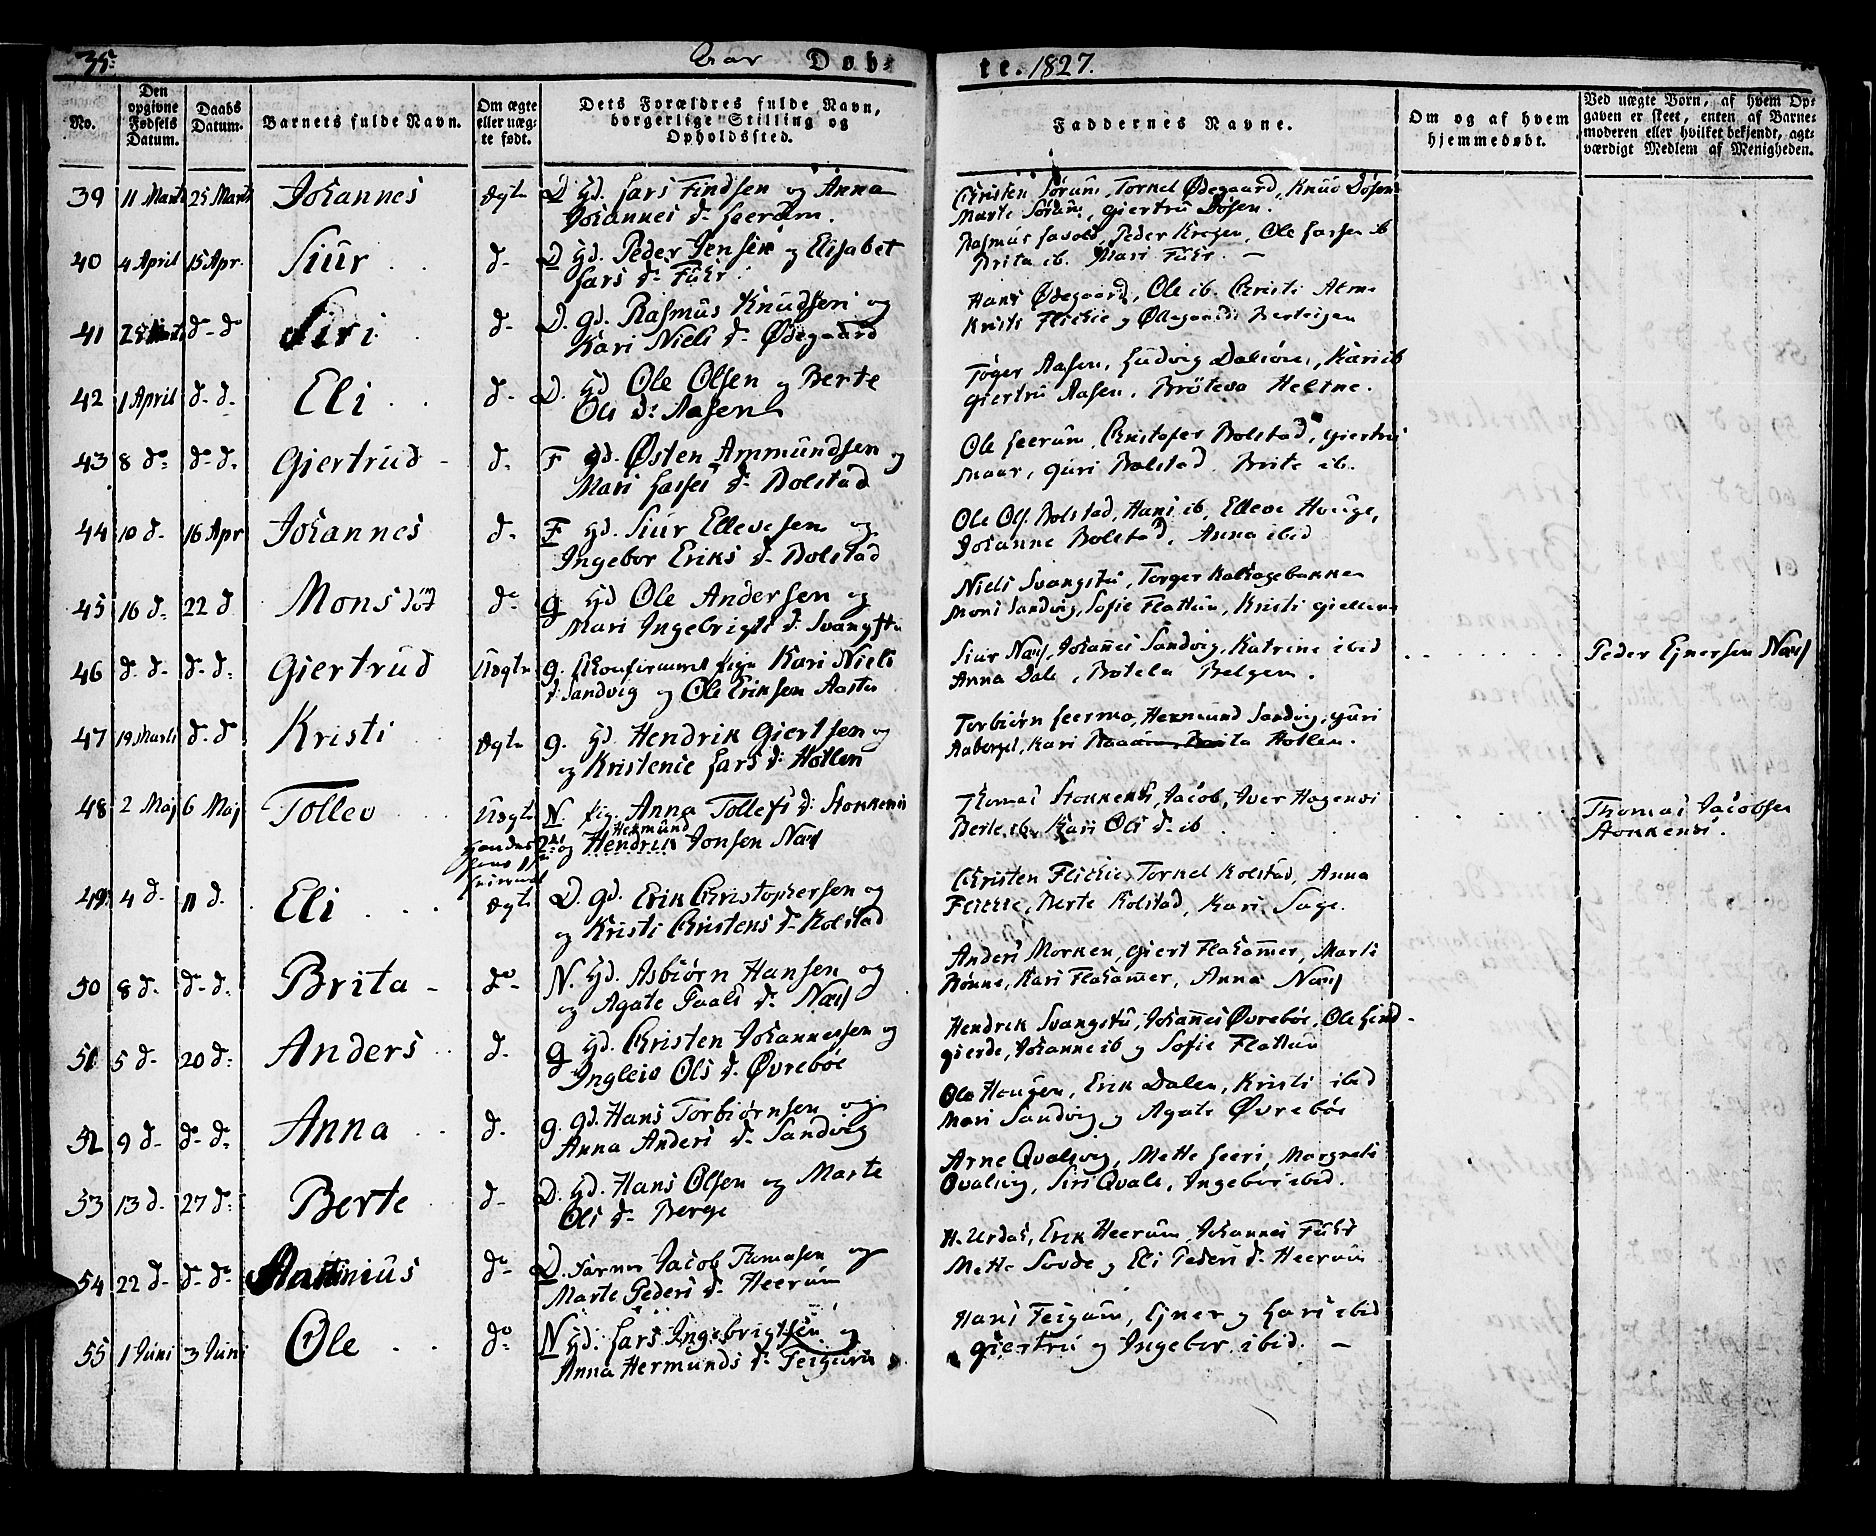 35. Aar Døb- te. 1827.
No.
Den opgivne Fødsels Datum.
Daabs Datum.
Barnets fulde Navn.
Om ægte eller uægte født.
Dets Forældres fulde Navn, borgerlige Stilling og Opholdssted.
Faddernes Navne.
Om og af hvem hjemmedøbt.
Ved uægte Børn, af hvem Opgaven er skeet, enten af Barnemoderen eller hvilket bekjendt, agtværdigt Medlem af Menigheden.
39 11 Marts 25 Marts Johannes Ægte D Gd. Lars Findsen og Anna
Johannes d. Leerum.
Christen Sørum, Tornel Ødegaard, Knud Døsen
Marte Sørum, Giertru Døsen.
40 4 April 15 Apr. Siur d- D Gd. Peder Jensen og Elisabet
Lars d. Fuhr.
Rasmus Savold, Peder Krogen, Ole Larsen ib
Brita ib. Mari Fuhr. —
41 d- d Siri d- D. gd. Rasmus Knudsen og
Kari Niels d- Ødegaard
Hans Ødegaard, Ole ib. Christi Alme
42 1 April d- d. Eli d- D. Gd Ole Olsen og Berte
Ols d: Aasen
Giertru Aasen, Brøteva Heltne.
43 8 d- d- d. Giertrud - d. F gd. Østen Ammundsen og
Mari Lasses d- Bolstad
Ole Leerum, Christofer Bolstad, Giertru
Maar, Guri Bolstad. Brite ib.
44 10 d- 16 Apr Johannes d- F Gd. Siur Ellevesen og
Ingebor Eriks d- Bolstad
Ole Ols. Bolstad, Hans ib, Elleve Houge,
Johanne Bolstad, Anna ibid
45 16 d- 22 d Mons død d- G Gd Ole Andersen og
Mari Ingebrigts d. Svangstu
Niels Svangstu, Torger
Mons Sandvig, Sofie Flattun, Kristi
46 d- d- d- d- Giertrud Uægte G. Ukonfirmeret Pige Kari Niels
d. Sandvig og Ole Eriksen Aasten
Siur Næss, Johannes Sandvig, Katrine ibid
Anna Dale, Botela Bolgen.
Peder Ejnersen Næss
47 19 Marts d- d Kristi Ægte G. Gd. Hendrik Giertsen og
og Kristence Lars d: Hollen
Torbiørn Leermo, Hermund Sandvig, Guri
Aaberget, Kari Brita Hollen.
48 2 Maj 6 Maj Tollev Uægte N. Pig. Anna Tollefs d. Stokkenes
og Hendrik Hermund Jonsen Næss
Thomas Stokkenes, Jacob, Iver Hagenes
Berte ib, Kari Ols d- ib
Thomas Jacobsen
Stokkenes.
49 4 d- 11 d. Eli Ægte D. gd. Erik Christophersen og
og Kristi Christens d- Kolstad
Christen Flickie, Tornel Kolstad, Anna
Flickie, Berte Kolstad, Kari Sage.
50 8 d- d- d. Brita - d- N. Gd. Asbiørn Hansen og
og Agate Paals d. Næss
Anders Morken, Giert Flahammer, Marti
Rønne, Kari Flahammer, Anna Næss
51 5 d- 20 d- Anders d. G Gd. Christen Johannessen og
Ingleiv Ols d. Øvrebøe
Hendrik Svangstu, Johannes Øvrebøe, Ole Lind-
gierde, Johanne ib og Sofie Flattun
52 9 d- d- d- Anna d. G. gd. Hans Torbiørnsen og
Anna Anders d- Sandvig
Ole Hougen, Erik Dalen, Kristi ibid
Mari Sandvig og Agate Øvrebøe
53 13 d- 27 d- Berte d- D. Gd. Hans Olsen og Marte
Ols d- Berge
Arne Qvalevig, Mette Leeri, Margrete
Qvalevig, Siri Qvale, Ingebor ibid.
54 22 d- d- d- d- D. Jacob Thomasen og
Marte Peders d. Heerum
H. Urdal, Erik Heerum, Johannes Fuhr
Mette Sovde og Eli Peders d. Heerum
55 1 Juni 3 Juni Ole d- N Gd. Lars Ingebrigtsen og
Anna Hermunds d- Feigum
Hans Feigum, Ejner og Lars ibid
Giertru og Ingebor ibid. —